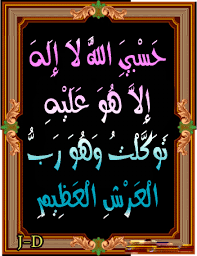 حَسْبِيَ اللهُ لَا إِلَهَ
إِلَّا هُوَ عَلَيْهِ
تَوَكَّلْتُ وَهُوَ رَبُّ
الْعَرْشِ الْعَظِيمِ
J-D